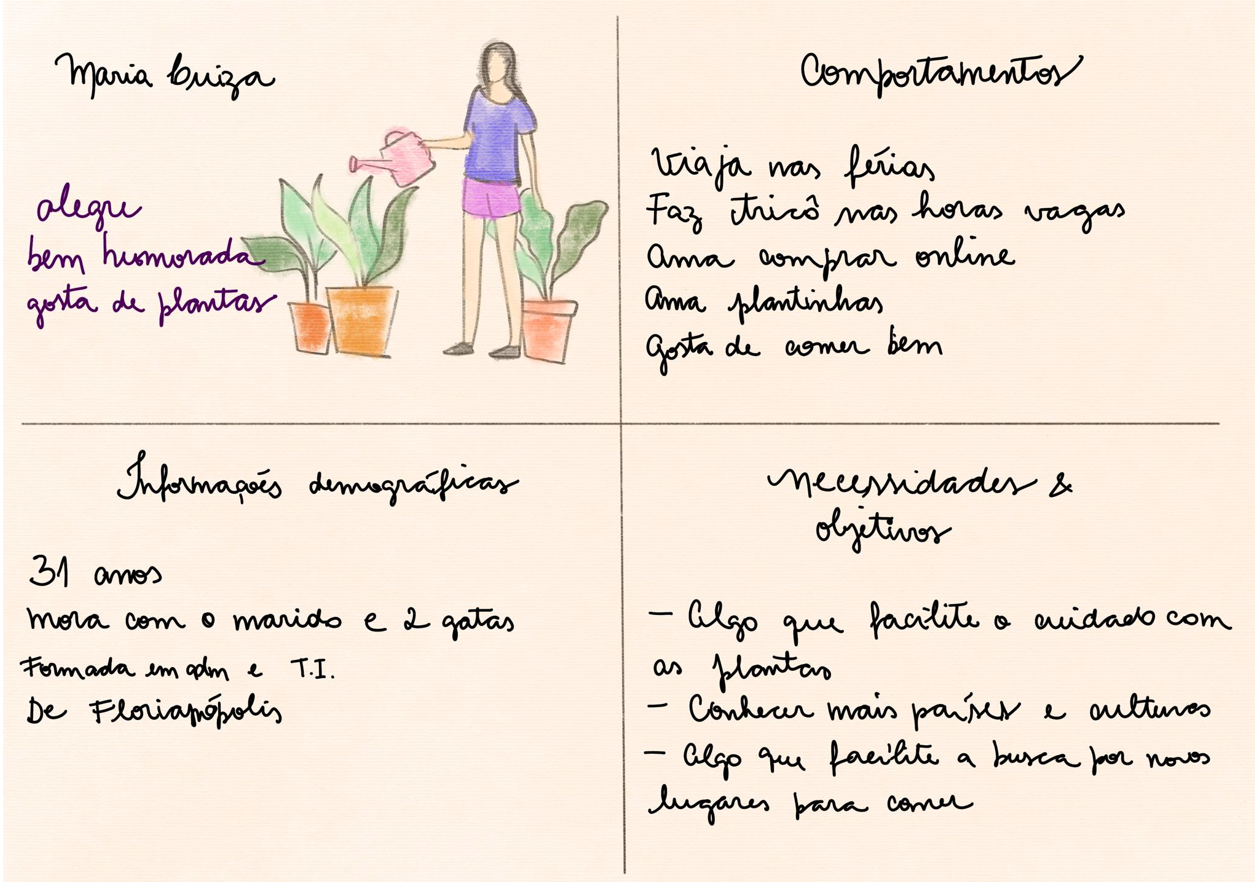 Maria Luiza
alegre
bem humorada
gosta de plantas
Comportamentos
Viaja nas férias
Faz tricô nas horas vagas
Ama comprar online
Ama plantinhas
Gosta de comer bem
Informações demográficas
31 anos
Mora com o marido e 2 gatas
Formada em adm e T.I.
De Florianópolis
Necessidades &
objetivos
- Algo que facilite o cuidado com
as plantas
- Conhecer mais países e culturas
- Algo que facilite a busca por novos
lugares para comer